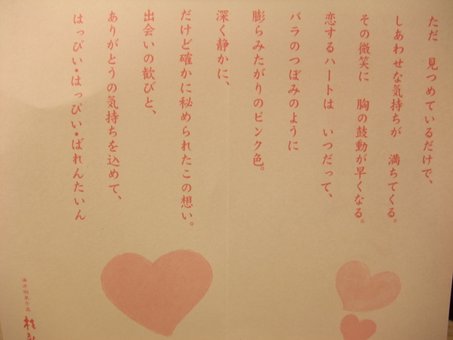 ただ　見つめているだけで、
しあわせな気持ちが　満ちてくる。
その微笑に　胸の鼓動が早くなる。
恋するハートは　いつだって、
バラのつぼみのように
膨らみたがりのピンク色。
深く静かに、
だけど確かに秘められたこの想い。
出会いの歓びと、
ありがとうの気持ちを込めて、
はっぴい・はっぴい・ばれんたいん